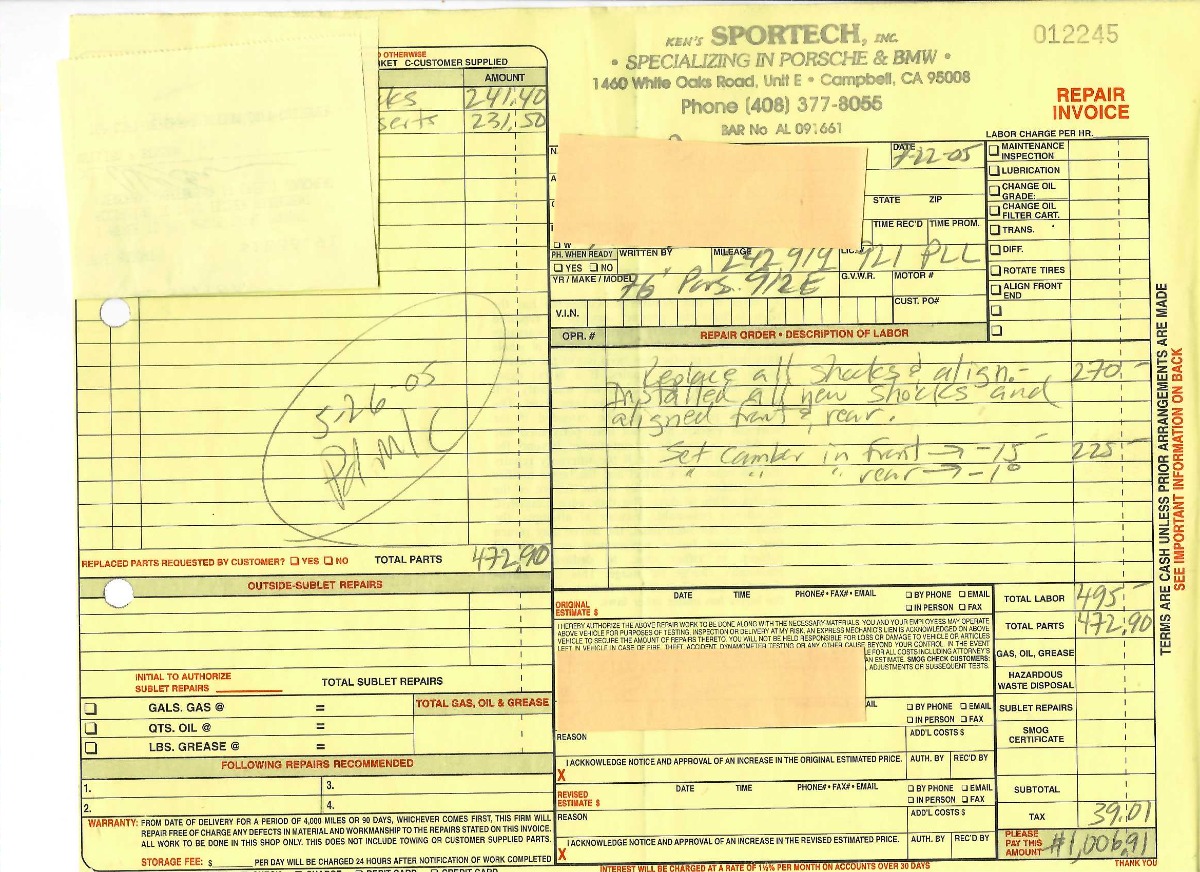 KEN'S SPORTECH, INC.
• SPECIALIZING IN PORSCHE & BMW •
1460 White Oaks Road, Unit E • Campbell, CA 95008
Phone (408) 377-8055
BAR No AL 091661
012245
REPAIR
INVOICE
OTHERWISE
KET C-CUSTOMER SUPPLIED
AMOUNT
cks 241.40
serts 231.50
5-26-05
Pd M/C
REPLACED PARTS REQUESTED BY CUSTOMER? ☐ YES ☐ NO TOTAL PARTS 472.90
OUTSIDE-SUBLET REPAIRS
INITIAL TO AUTHORIZE
SUBLET REPAIRS TOTAL SUBLET REPAIRS
☐ GALS. GAS @ = TOTAL GAS, OIL & GREASE
☐ QTS. OIL @ =
☐ LBS. GREASE @ =
FOLLOWING REPAIRS RECOMMENDED
1. 3.
2. 4.
WARRANTY: FROM DATE OF DELIVERY FOR A PERIOD OF 4,000 MILES OR 90 DAYS, WHICHEVER COMES FIRST, THIS FIRM WILL
REPAIR FREE OF CHARGE ANY DEFECTS IN MATERIAL AND WORKMANSHIP TO THE REPAIRS STATED ON THIS INVOICE.
ALL WORK TO BE DONE IN THIS SHOP ONLY. THIS DOES NOT INCLUDE TOWING OR CUSTOMER SUPPLIED PARTS.
STORAGE FEE: $ PER DAY WILL BE CHARGED 24 HOURS AFTER NOTIFICATION OF WORK COMPLETED
DATE
-22-05
STATE ZIP
TIME REC'D TIME PROM.
PH. WHEN READY WRITTEN BY MILEAGE LIC.
☐ YES ☐ NO 242914 921 PLL
YR / MAKE / MODEL 76' Pors. 912E G.V.W.R. MOTOR #
V.I.N. CUST. PO#
LABOR CHARGE PER HR.
☐ MAINTENANCE
INSPECTION
☐ LUBRICATION
☐ CHANGE OIL
GRADE:
☐ CHANGE OIL
FILTER CART.
☐ TRANS.
☐ DIFF.
☐ ROTATE TIRES
☐ ALIGN FRONT
END
OPR. # REPAIR ORDER • DESCRIPTION OF LABOR
Replace all shocks & align.- 270.-
Installed all new shocks and
aligned front & rear.
Set camber in front → -15' 225-
" " " rear → -1°
ORIGINAL
ESTIMATE $ DATE TIME PHONE# • FAX# • EMAIL ☐ BY PHONE ☐ EMAIL
☐ IN PERSON ☐ FAX
I HEREBY AUTHORIZE THE ABOVE REPAIR WORK TO BE DONE ALONG WITH THE NECESSARY MATERIALS. YOU AND YOUR EMPLOYEES MAY OPERATE
ABOVE VEHICLE FOR PURPOSES OF TESTING, INSPECTION OR DELIVERY AT MY RISK. AN EXPRESS MECHANIC'S LIEN IS ACKNOWLEDGED ON ABOVE
VEHICLE TO SECURE THE AMOUNT OF REPAIRS THERETO. YOU WILL NOT BE HELD RESPONSIBLE FOR LOSS OR DAMAGE TO VEHICLE OR ARTICLES
LEFT IN VEHICLE IN CASE OF FIRE, THEFT, ACCIDENT, DYNAMOMETER TESTING OR ANY OTHER CAUSE BEYOND YOUR CONTROL. IN THE EVENT
FOR ALL COSTS INCLUDING ATTORNEY'S
AN ESTIMATE. SMOG CHECK CUSTOMERS:
ADJUSTMENTS OR SUBSEQUENT TESTS.
AIL ☐ BY PHONE ☐ EMAIL
☐ IN PERSON ☐ FAX
REASON ADD'L COSTS $
I ACKNOWLEDGE NOTICE AND APPROVAL OF AN INCREASE IN THE ORIGINAL ESTIMATED PRICE. AUTH. BY REC'D BY
X
REVISED
ESTIMATE $ DATE TIME PHONE# • FAX# • EMAIL ☐ BY PHONE ☐ EMAIL
☐ IN PERSON ☐ FAX
REASON ADD'L COSTS $
I ACKNOWLEDGE NOTICE AND APPROVAL OF AN INCREASE IN THE REVISED ESTIMATED PRICE. AUTH. BY REC'D BY
X
INTEREST WILL BE CHARGED AT A RATE OF 1½% PER MONTH ON ACCOUNTS OVER 30 DAYS
TOTAL LABOR 495-
TOTAL PARTS 472.90
GAS, OIL, GREASE
HAZARDOUS
WASTE DISPOSAL
SUBLET REPAIRS
SMOG
CERTIFICATE
SUBTOTAL
TAX 39.01
PLEASE
PAY THIS
AMOUNT #1,006.91
THANK YOU
TERMS ARE CASH UNLESS PRIOR ARRANGEMENTS ARE MADE
SEE IMPORTANT INFORMATION ON BACK